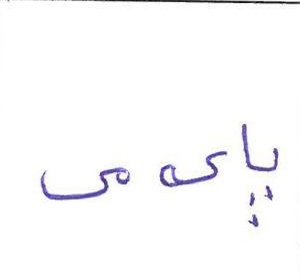 پای می